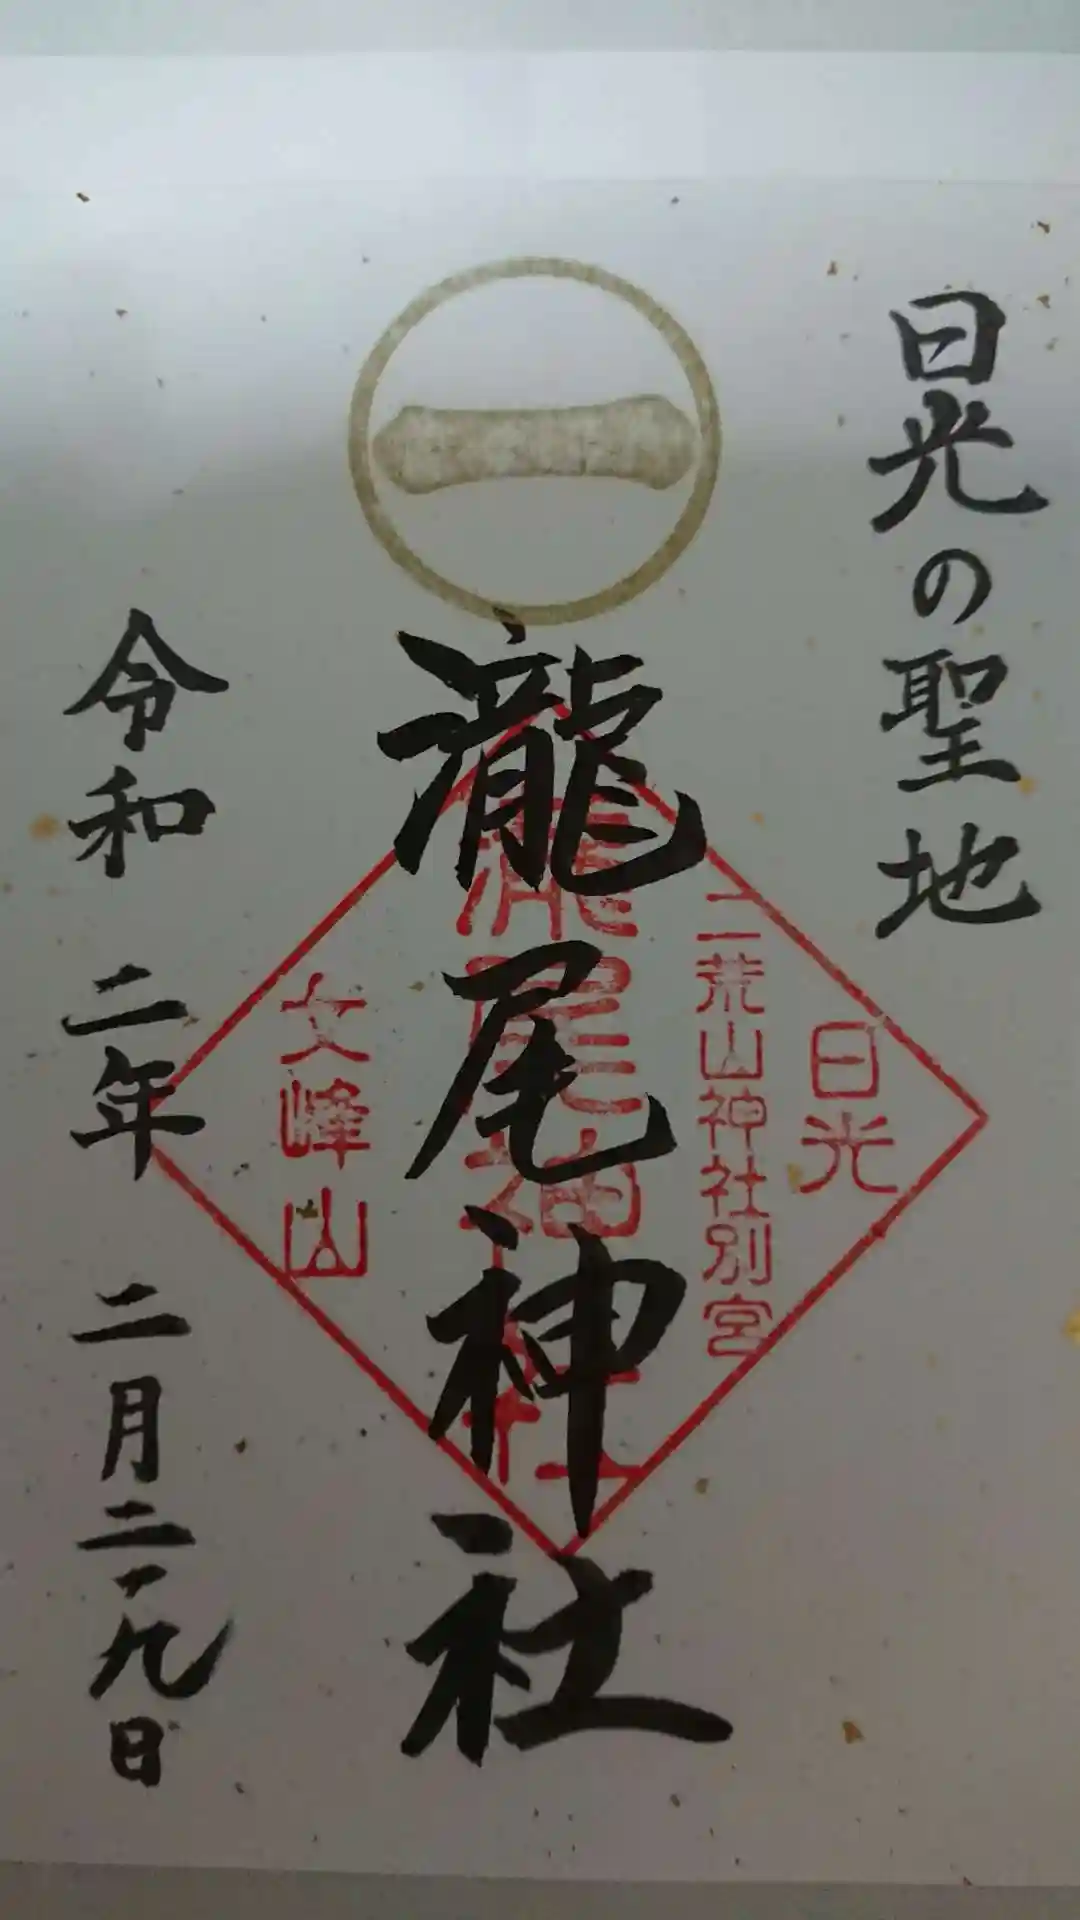 日光の聖地
一
瀧尾神社
日光
二荒山神社別宮
瀧尾神社
女峰山
令和二年二月二九日